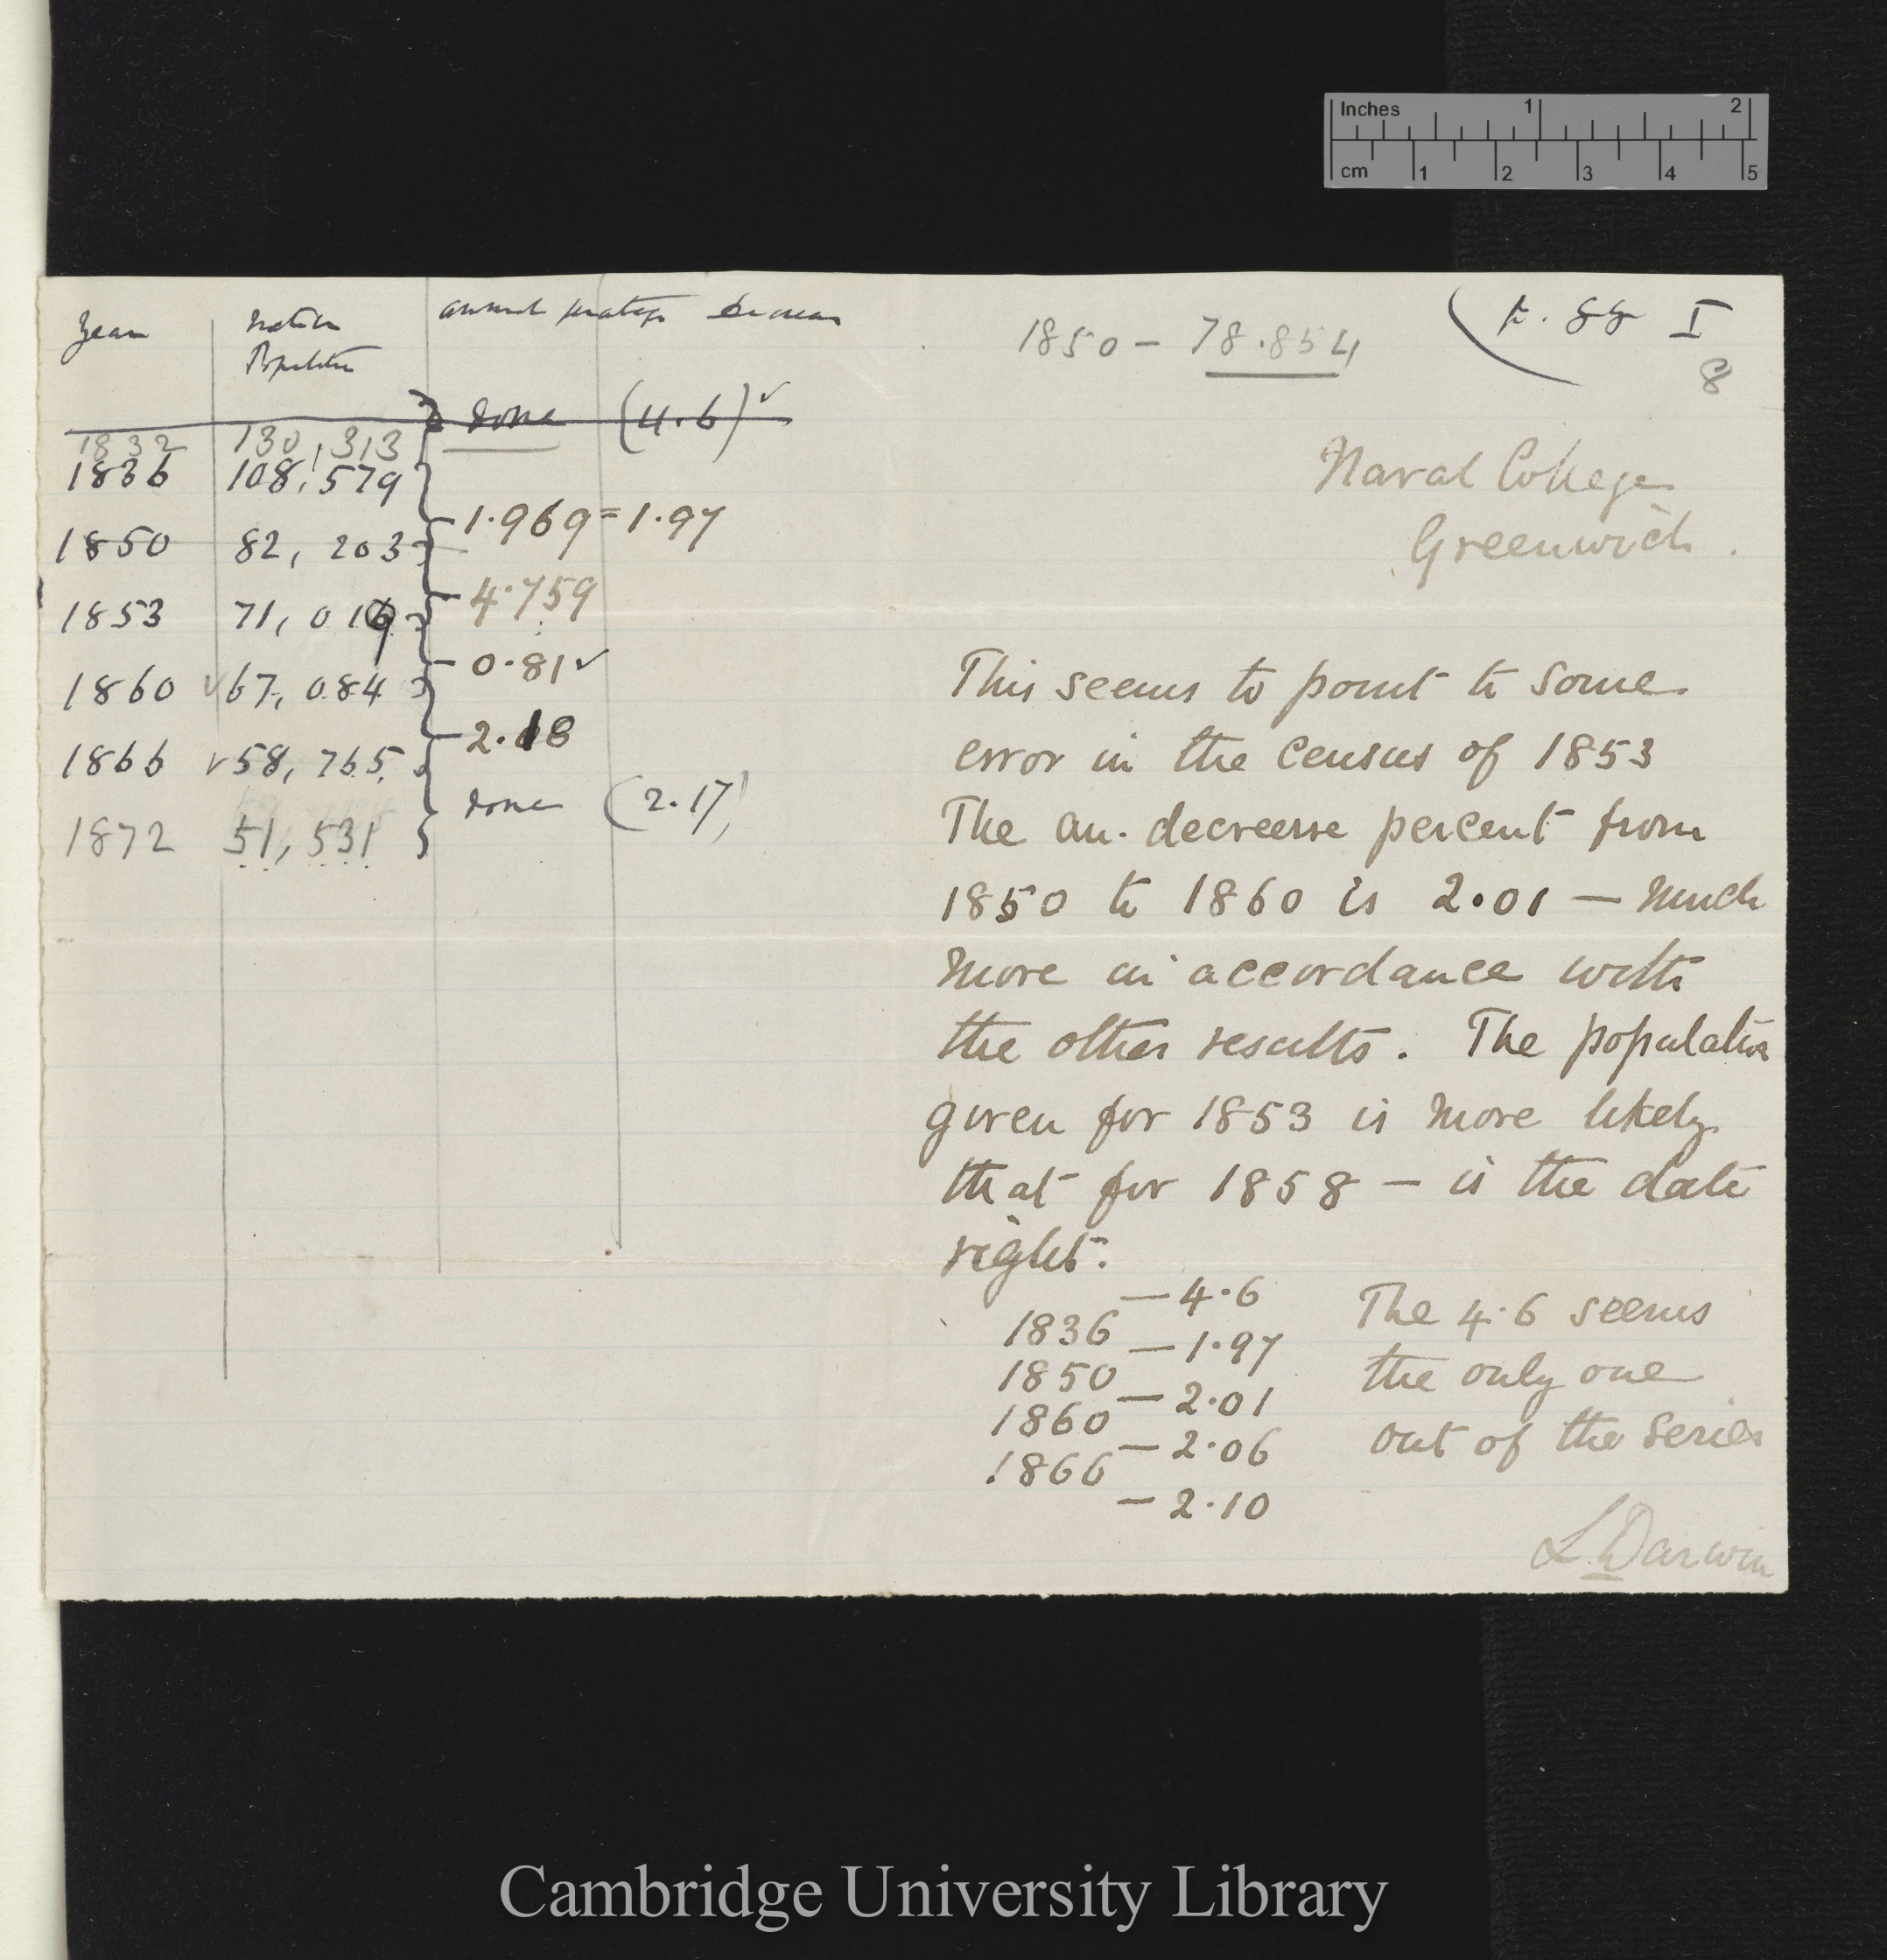 Inches 1 2
cm 1 2 3 4 5
Year Native annual decrease
Population
done (4.6) ✓
1832 130,313
1836 108,579
1.969 = 1.97
1850 82, 203
4.759
1853 71, 019
0.81 ✓
1860 ✓ 67, 084
2.18
1866 ✓ 58, 765
done (2.17)
1872 51, 531
1850 – 78.854
p. 88 I
8
Naval College
Greenwich.
This seems to point to some
error in the census of 1853
The an. decrease percent from
1850 to 1860 is 2.01 — much
more in accordance with
the other results. The population
given for 1853 is more likely
that for 1858 — is the date
right.
— 4.6
1836
— 1.97
1850
— 2.01
1860
— 2.06
1866
— 2.10
The 4.6 seems
the only one
out of the series
L. Darwin
Cambridge University Library